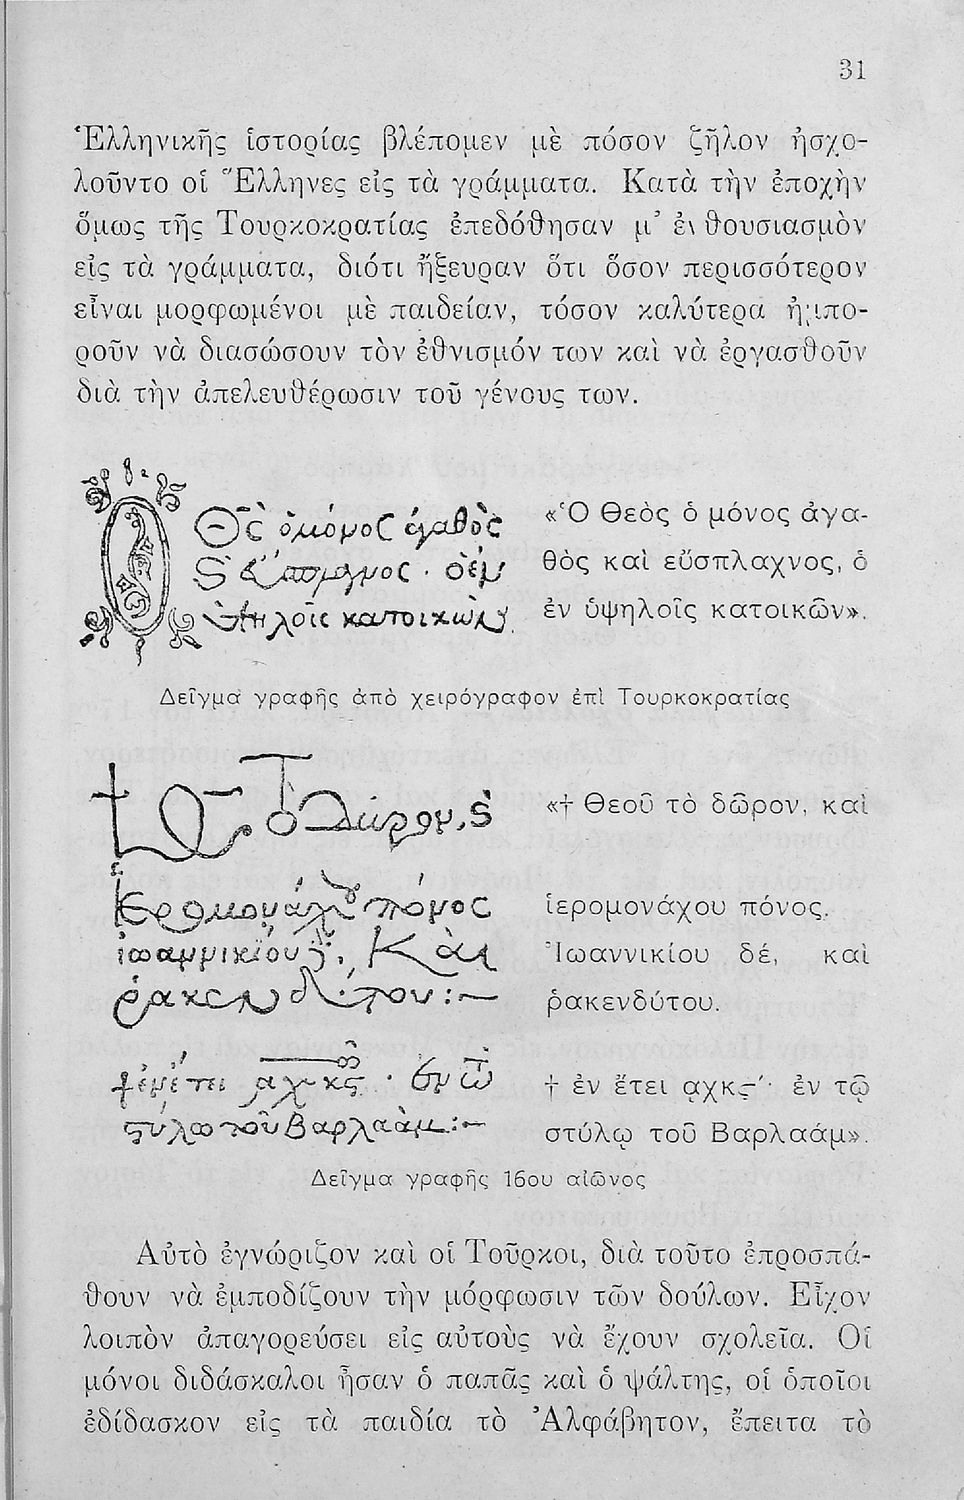 31
Ἑλληνικῆς ἱστορίας βλέπομεν μὲ πόσον ζῆλον ἠσχο-
λοῦντο οἱ Ἕλληνες εἰς τὰ γράμματα. Κατὰ τὴν ἐποχὴν
ὅμως τῆς Τουρκοκρατίας ἐπεδόθησαν μ’ ἐνθουσιασμὸν
εἰς τὰ γράμματα, διότι ἤξευραν ὅτι ὅσον περισσότερον
εἶναι μορφωμένοι μὲ παιδείαν, τόσον καλύτερα ἠμπο-
ροῦν νὰ διασώσουν τὸν ἐθνισμόν των καὶ νὰ ἐργασθοῦν
διὰ τὴν ἀπελευθέρωσιν τοῦ γένους των.
«Ὁ Θεὸς ὁ μόνος ἀγα-
θὸς καὶ εὔσπλαχνος, ὁ
ἐν ὑψηλοῖς κατοικῶν».
Δεῖγμα γραφῆς ἀπὸ χειρόγραφον ἐπὶ Τουρκοκρατίας
«† Θεοῦ τὸ δῶρον, καὶ
ἱερομονάχου πόνος.
Ἰωαννικίου δέ, καὶ
ῥακενδύτου.
† ἐν ἔτει ͵αχκς′· ἐν τῷ
στύλῳ τοῦ Βαρλαάμ».
Δεῖγμα γραφῆς 16ου αἰῶνος
Αὐτὸ ἐγνώριζον καὶ οἱ Τοῦρκοι, διὰ τοῦτο ἐπροσπά-
θουν νὰ ἐμποδίζουν τὴν μόρφωσιν τῶν δούλων. Εἶχον
λοιπὸν ἀπαγορεύσει εἰς αὐτοὺς νὰ ἔχουν σχολεῖα. Οἱ
μόνοι διδάσκαλοι ἦσαν ὁ παπᾶς καὶ ὁ ψάλτης, οἱ ὁποῖοι
ἐδίδασκον εἰς τὰ παιδία τὸ Ἀλφάβητον, ἔπειτα τὸ